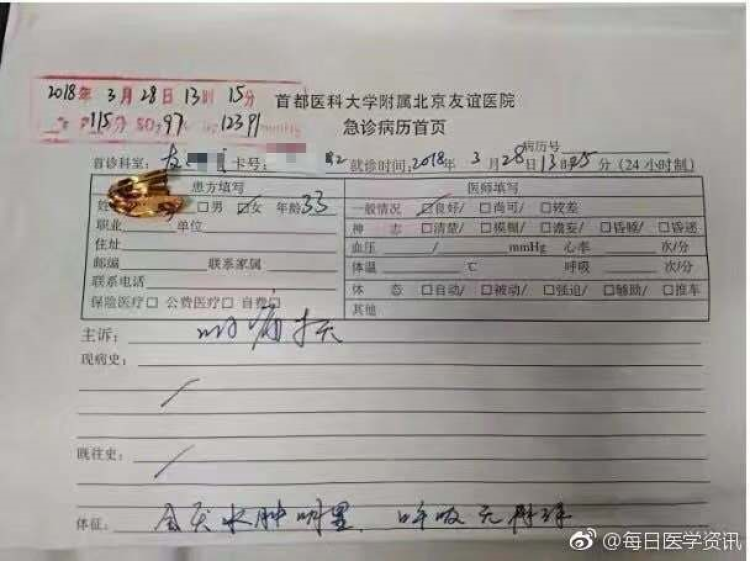 2018年3月28日13时15分
首都医科大学附属北京友谊医院
P 115 分 SO₂ 97 123 91 mmHg
急诊病历首页
病历号
首诊科室: 卡号: 就诊时间:2018年3月28日13时 5分(24小时制)
患方填写
医师填写
姓 □男 ☑女 年龄 33
一般情况 ☑良好/ □尚可/ □较差
职业 单位
神志 □清楚/ □模糊/ □谵妄/ □昏睡/ □昏迷
住址
血压 / mmHg 心率 次/分
邮编 联系家属
体温 ℃ 呼吸 次/分
联系电话
体态 □自动/ □被动/ □强迫/ □辅助/ □推车
保险医疗□ 公费医疗□ 自费□
其他
主诉: 咽痛 天
现病史:
/
既往史:
/
体征: 会厌水肿明显,呼吸无
@每日医学资讯